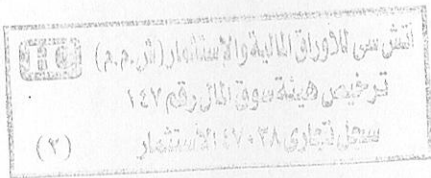 اتش سي للأوراق المالية والاستثمار (ش.م.م)
ترخيص هيئة سوق المال رقم ١٤٢
سجل تجاري ٤٧٠٣٨ الاستثمار
(٢)